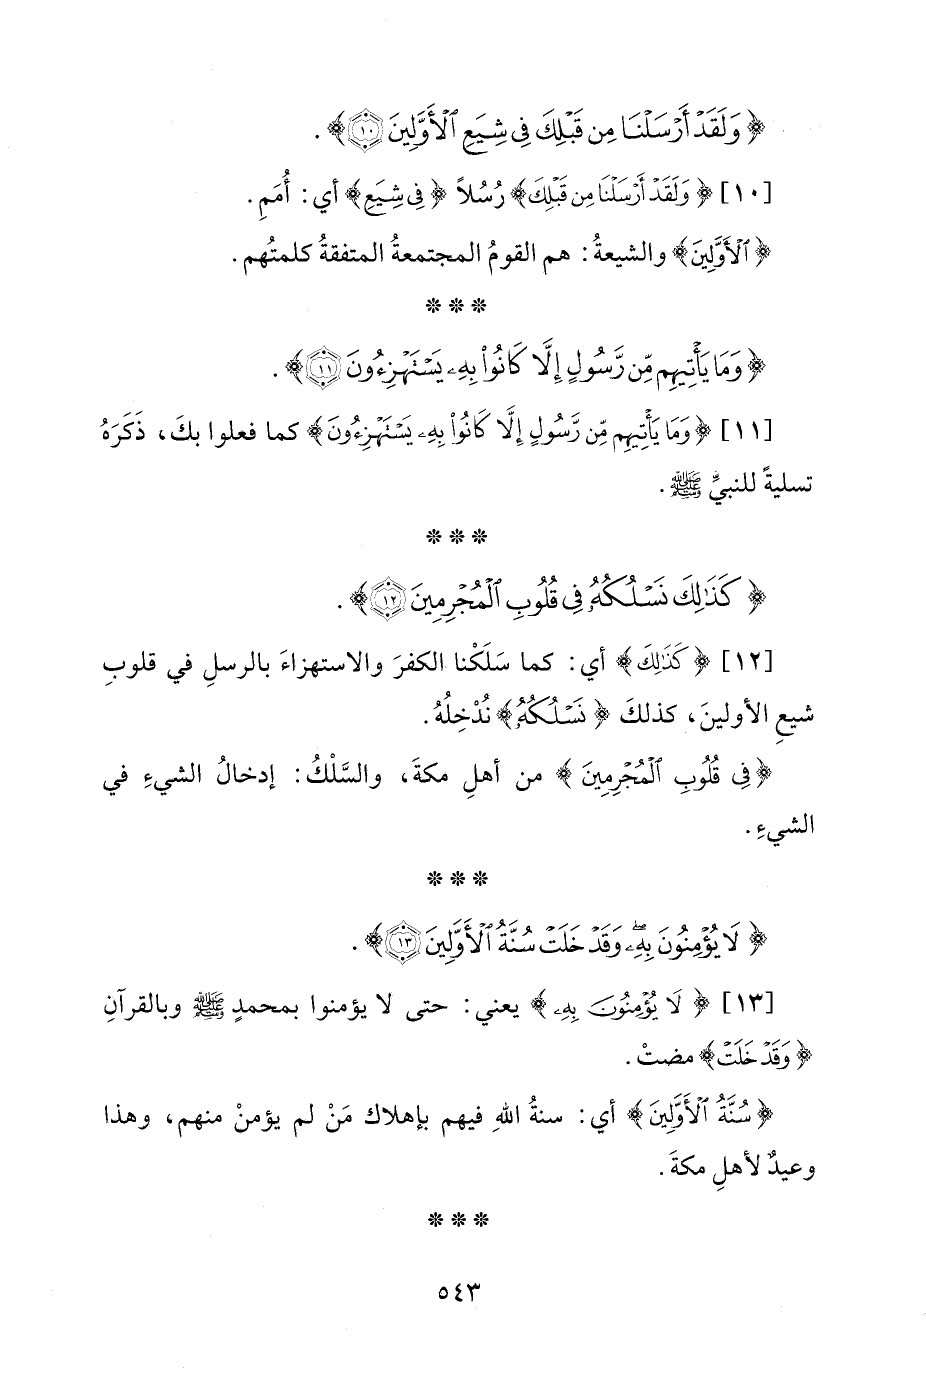 ﴿ وَلَقَدْ أَرْسَلْنَا مِن قَبْلِكَ فِي شِيَعِ ٱلْأَوَّلِينَ ۝١٠ ﴾ .
[١٠] ﴿ وَلَقَدْ أَرْسَلْنَا مِن قَبْلِكَ ﴾ رُسُلاً ﴿ فِي شِيَعِ ﴾ أي: أُمَمِ .
﴿ ٱلْأَوَّلِينَ ﴾ والشيعةُ: هم القومُ المجتمعةُ المتفقةُ كلمتُهم .
* * *
﴿ وَمَا يَأْتِيهِم مِّن رَّسُولٍ إِلَّا كَانُوا۟ بِهِۦ يَسْتَهْزِءُونَ ۝١١ ﴾ .
[١١] ﴿ وَمَا يَأْتِيهِم مِّن رَّسُولٍ إِلَّا كَانُوا۟ بِهِۦ يَسْتَهْزِءُونَ ﴾ كما فعلوا بكَ، ذَكَرَهُ
تسليةً للنبيِّ ﷺ .
* * *
﴿ كَذَٰلِكَ نَسْلُكُهُۥ فِي قُلُوبِ ٱلْمُجْرِمِينَ ۝١٢ ﴾ .
[١٢] ﴿ كَذَٰلِكَ ﴾ أي: كما سَلَكْنا الكفرَ والاستهزاءَ بالرسلِ في قلوبِ
شيعِ الأولينَ، كذلكَ ﴿ نَسْلُكُهُۥ ﴾ نُدْخِلُهُ .
﴿ فِي قُلُوبِ ٱلْمُجْرِمِينَ ﴾ من أهلِ مكةَ، والسَّلْكُ: إدخالُ الشيءِ في
الشيءِ .
* * *
﴿ لَا يُؤْمِنُونَ بِهِۦ ۖ وَقَدْ خَلَتْ سُنَّةُ ٱلْأَوَّلِينَ ۝١٣ ﴾ .
[١٣] ﴿ لَا يُؤْمِنُونَ بِهِۦ ﴾ يعني: حتى لا يؤمنوا بمحمدٍ ﷺ وبالقرآنِ
﴿ وَقَدْ خَلَتْ ﴾ مضتْ .
﴿ سُنَّةُ ٱلْأَوَّلِينَ ﴾ أي: سنةُ اللهِ فيهم بإهلاك مَنْ لم يؤمنْ منهم، وهذا
وعيدٌ لأهلِ مكةَ .
* * *
٥٤٣